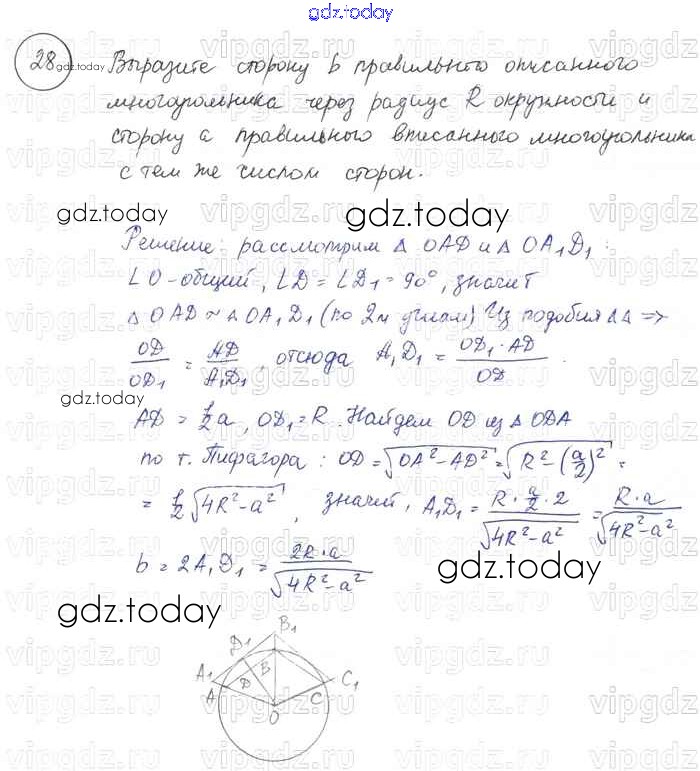 gdz.today
28 Выразите сторону b правильного описанного
многоугольника через радиус R окружности и
сторону a правильного вписанного многоугольника
с тем же числом сторон.
gdz.today
gdz.today
Решение: рассмотрим △ OAD и △ OA₁D₁:
∠O-общий, ∠D = ∠D₁ = 90°, значит
△ OAD ~ △ OA₁D₁ (по 2м углам) Из подобия △△ =>
OD/OD₁ = AD/A₁D₁, отсюда A₁D₁ = OD₁·AD/OD.
gdz.today
AD = 1/2 a, OD₁ = R. Найдем OD из △ ODA
по т. Пифагора: OD = √(OA²-AD²) = √(R²-(a/2)²) =
= 1/2 √(4R²-a²), значит, A₁D₁ = R·a/2·2/√(4R²-a²) = R·a/√(4R²-a²)
b = 2A₁D₁ = 2R·a/√(4R²-a²)
gdz.today
gdz.today
B₁
D₁
A₁ A D B C C₁
O
vipgdz.ru